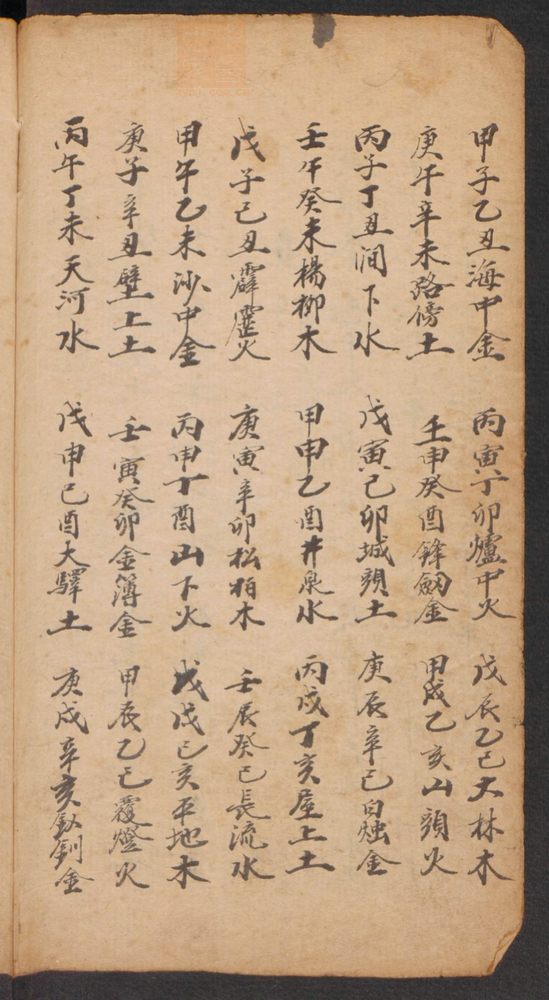 甲子乙丑海中金 丙寅丁卯爐中火 戊辰乙巳大林木
庚午辛未路傍土 壬申癸酉鋒劒金 甲戌乙亥山頭火
丙子丁丑澗下水 戊寅己卯城頭土 庚辰辛巳白烛金
壬午癸未楊柳木 甲申乙酉井泉水 丙戌丁亥屋上土
戊子己丑霹靂火 庚寅辛卯松柏木 壬辰癸巳長流水
甲午乙未沙中金 丙申丁酉山下火 戊戌己亥平地木
庚子辛丑壁上土 壬寅癸卯金簿金 甲辰乙巳覆燈火
丙午丁未天河水 戊申己酉大驛土 庚戌辛亥釵釧金